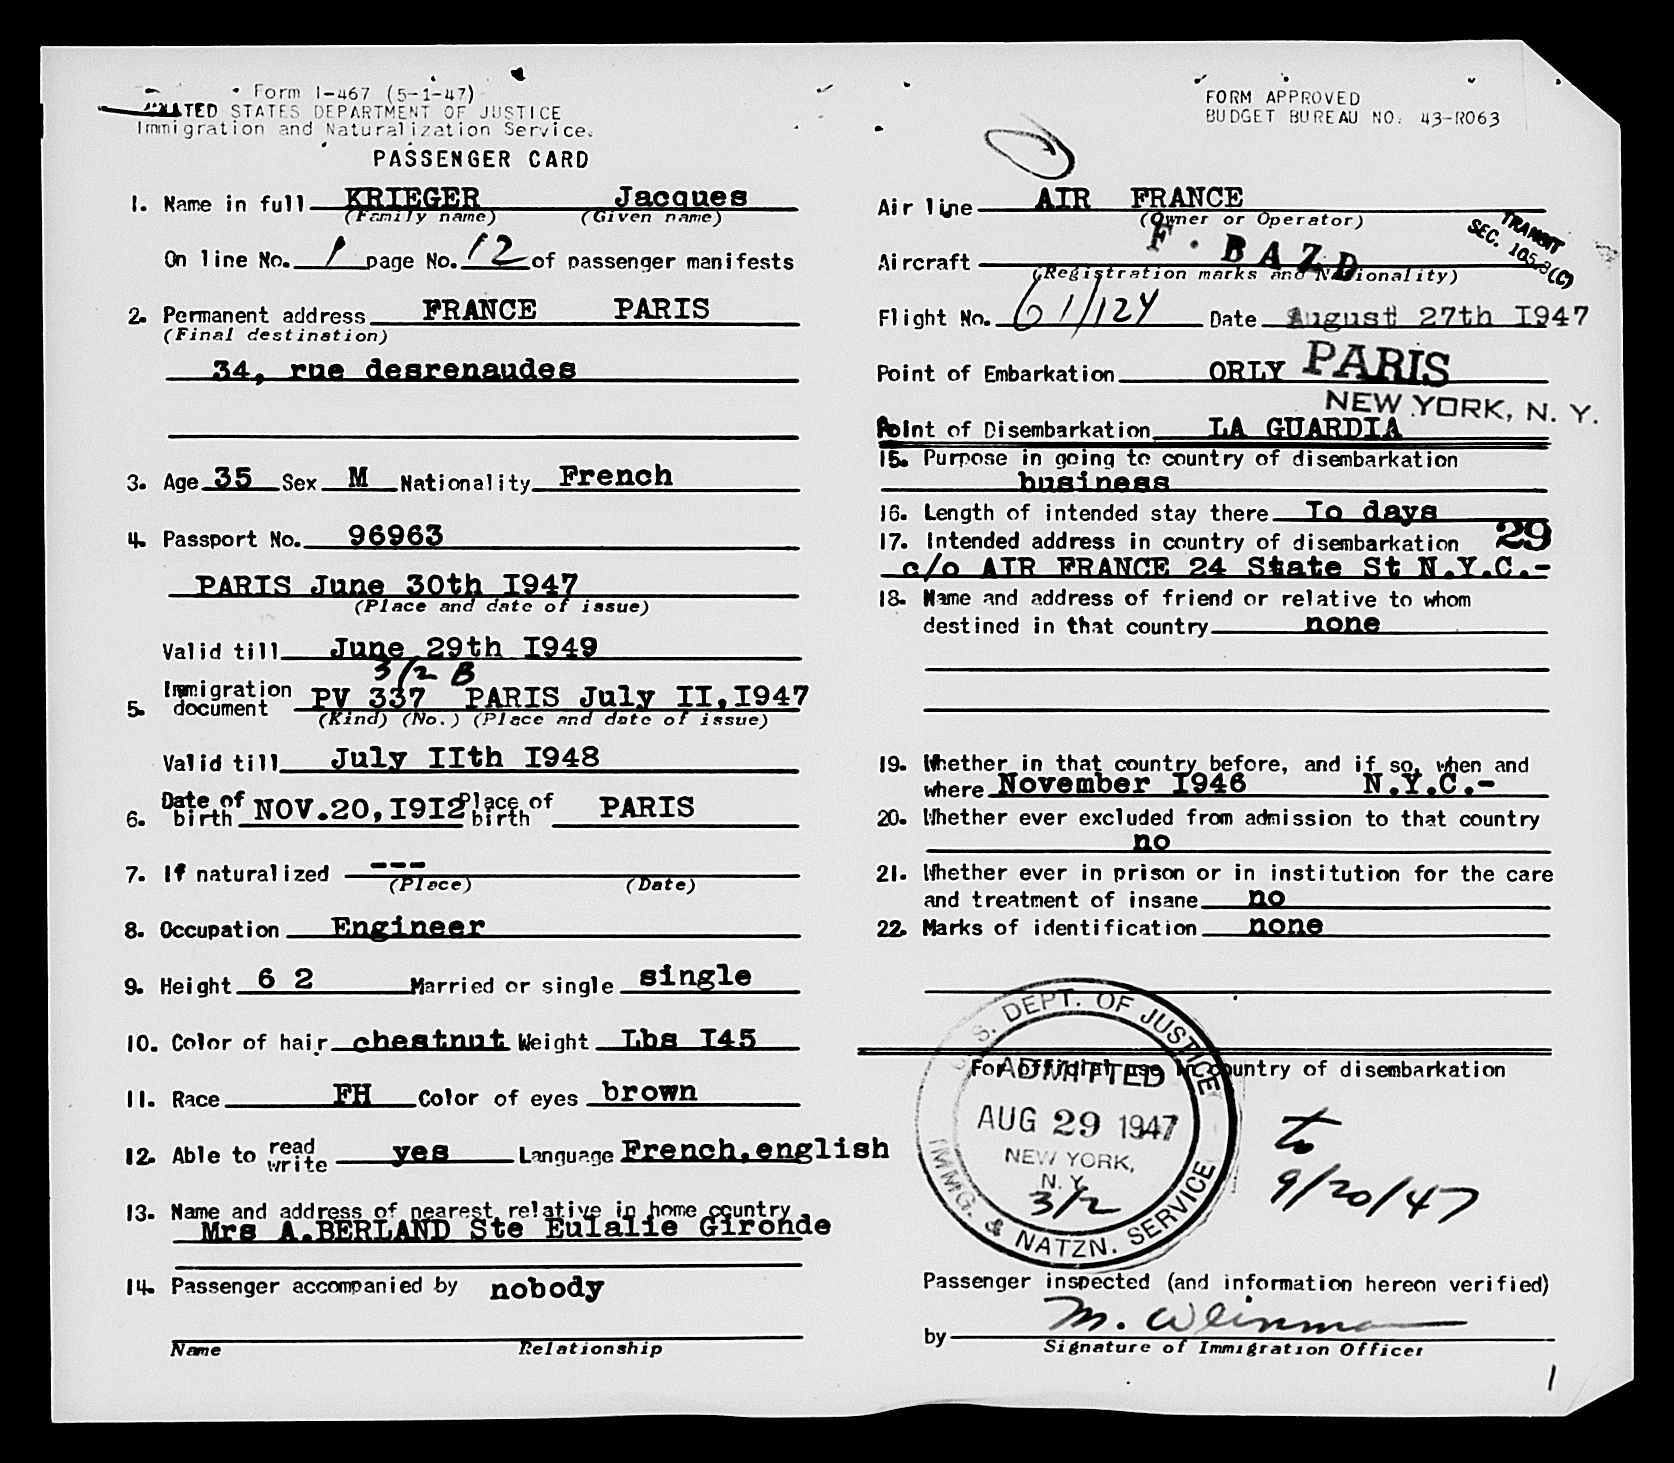 Form I-467 (5-1-47)
UNITED STATES DEPARTMENT OF JUSTICE
Immigration and Naturalization Service.
PASSENGER CARD
1. Name in full KRIEGER Jacques
(Family name) (Given name)
On line No. 1 page No. 12 of passenger manifests
2. Permanent address FRANCE PARIS
(Final destination)
34, rue desrenaudes
3. Age 35 Sex M Nationality French
4. Passport No. 96963
PARIS June 30th I947
(Place and date of issue)
Valid till June 29th I949
3/2 B
5. Immigration document PV 337 PARIS July II,I947
(Kind) (No.) (Place and date of issue)
Valid till July IIth I948
6. Date of birth NOV.20,I9I2 Place of birth PARIS
7. If naturalized ---
(Place) (Date)
8. Occupation Engineer
9. Height 6 2 Married or single single
10. Color of hair chestnut Weight Lbs I45
11. Race FH Color of eyes brown
12. Able to read write yes Language French,english
13. Name and address of nearest relative in home country
Mrs A.BERLAND Ste Eulalie Gironde
14. Passenger accompanied by nobody
Name Relationship
FORM APPROVED
BUDGET BUREAU NO. 43-R063
Air line AIR FRANCE
(Owner or Operator)
TRANSIT
SEC. 105.3(C)
Aircraft F. BAZD
(Registration marks and Nationality)
Flight No. 61/124 Date August 27th I947
Point of Embarkation ORLY PARIS
NEW YORK, N. Y.
Point of Disembarkation LA GUARDIA
15. Purpose in going to country of disembarkation
business
16. Length of intended stay there Io days
17. Intended address in country of disembarkation 29
c/o AIR FRANCE 24 State St N.Y.C.-
18. Name and address of friend or relative to whom
destined in that country none
19. Whether in that country before, and if so, when and
where November I946 N.Y.C.-
20. Whether ever excluded from admission to that country
no
21. Whether ever in prison or in institution for the care
and treatment of insane no
22. Marks of identification none
For official use in country of disembarkation
U. S. DEPT. OF JUSTICE
ADMITTED
AUG 29 1947
NEW YORK,
N. Y.
3/2
IMMG. & NATZN. SERVICE
to
9/20/47
Passenger inspected (and information hereon verified)
by M. Weinman
Signature of Immigration Officer
1